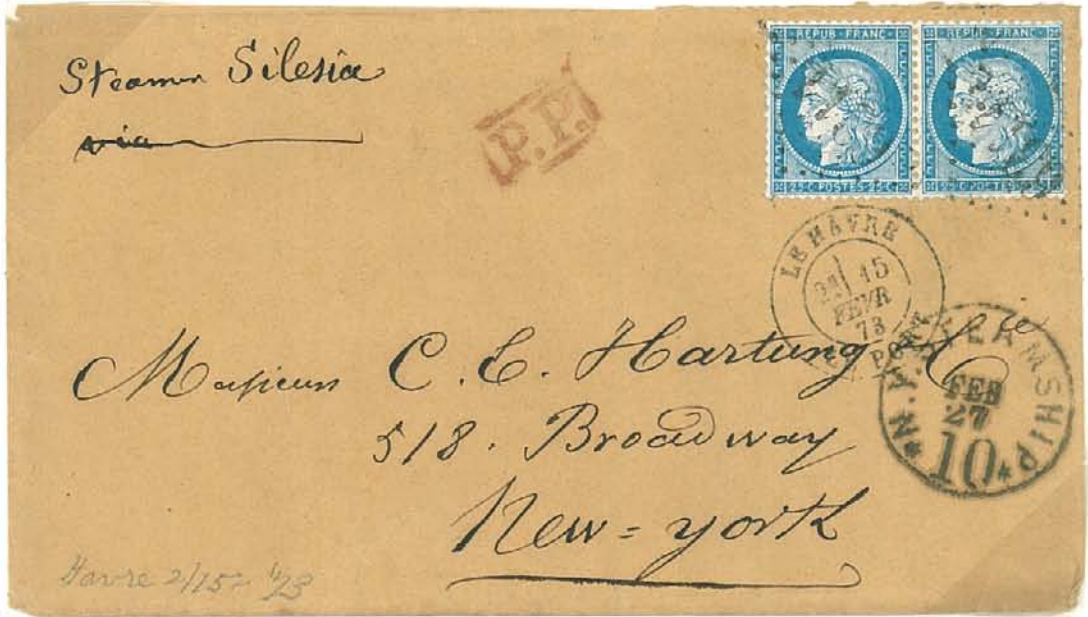 Steamer Silesia
via
P.P.
REPUB · FRANC ·
25 · C · POSTES · 25 · C ·
REPUB · FRANC ·
25 · C · POSTES · 25 · C ·
LE HAVRE
15
FEVR
73
LE PORT
N.Y. STEAMSHIP
FEB
27
10
Monsieur C. E. Hartung & Cie
518. Broadway
New=york
Havre 2/15